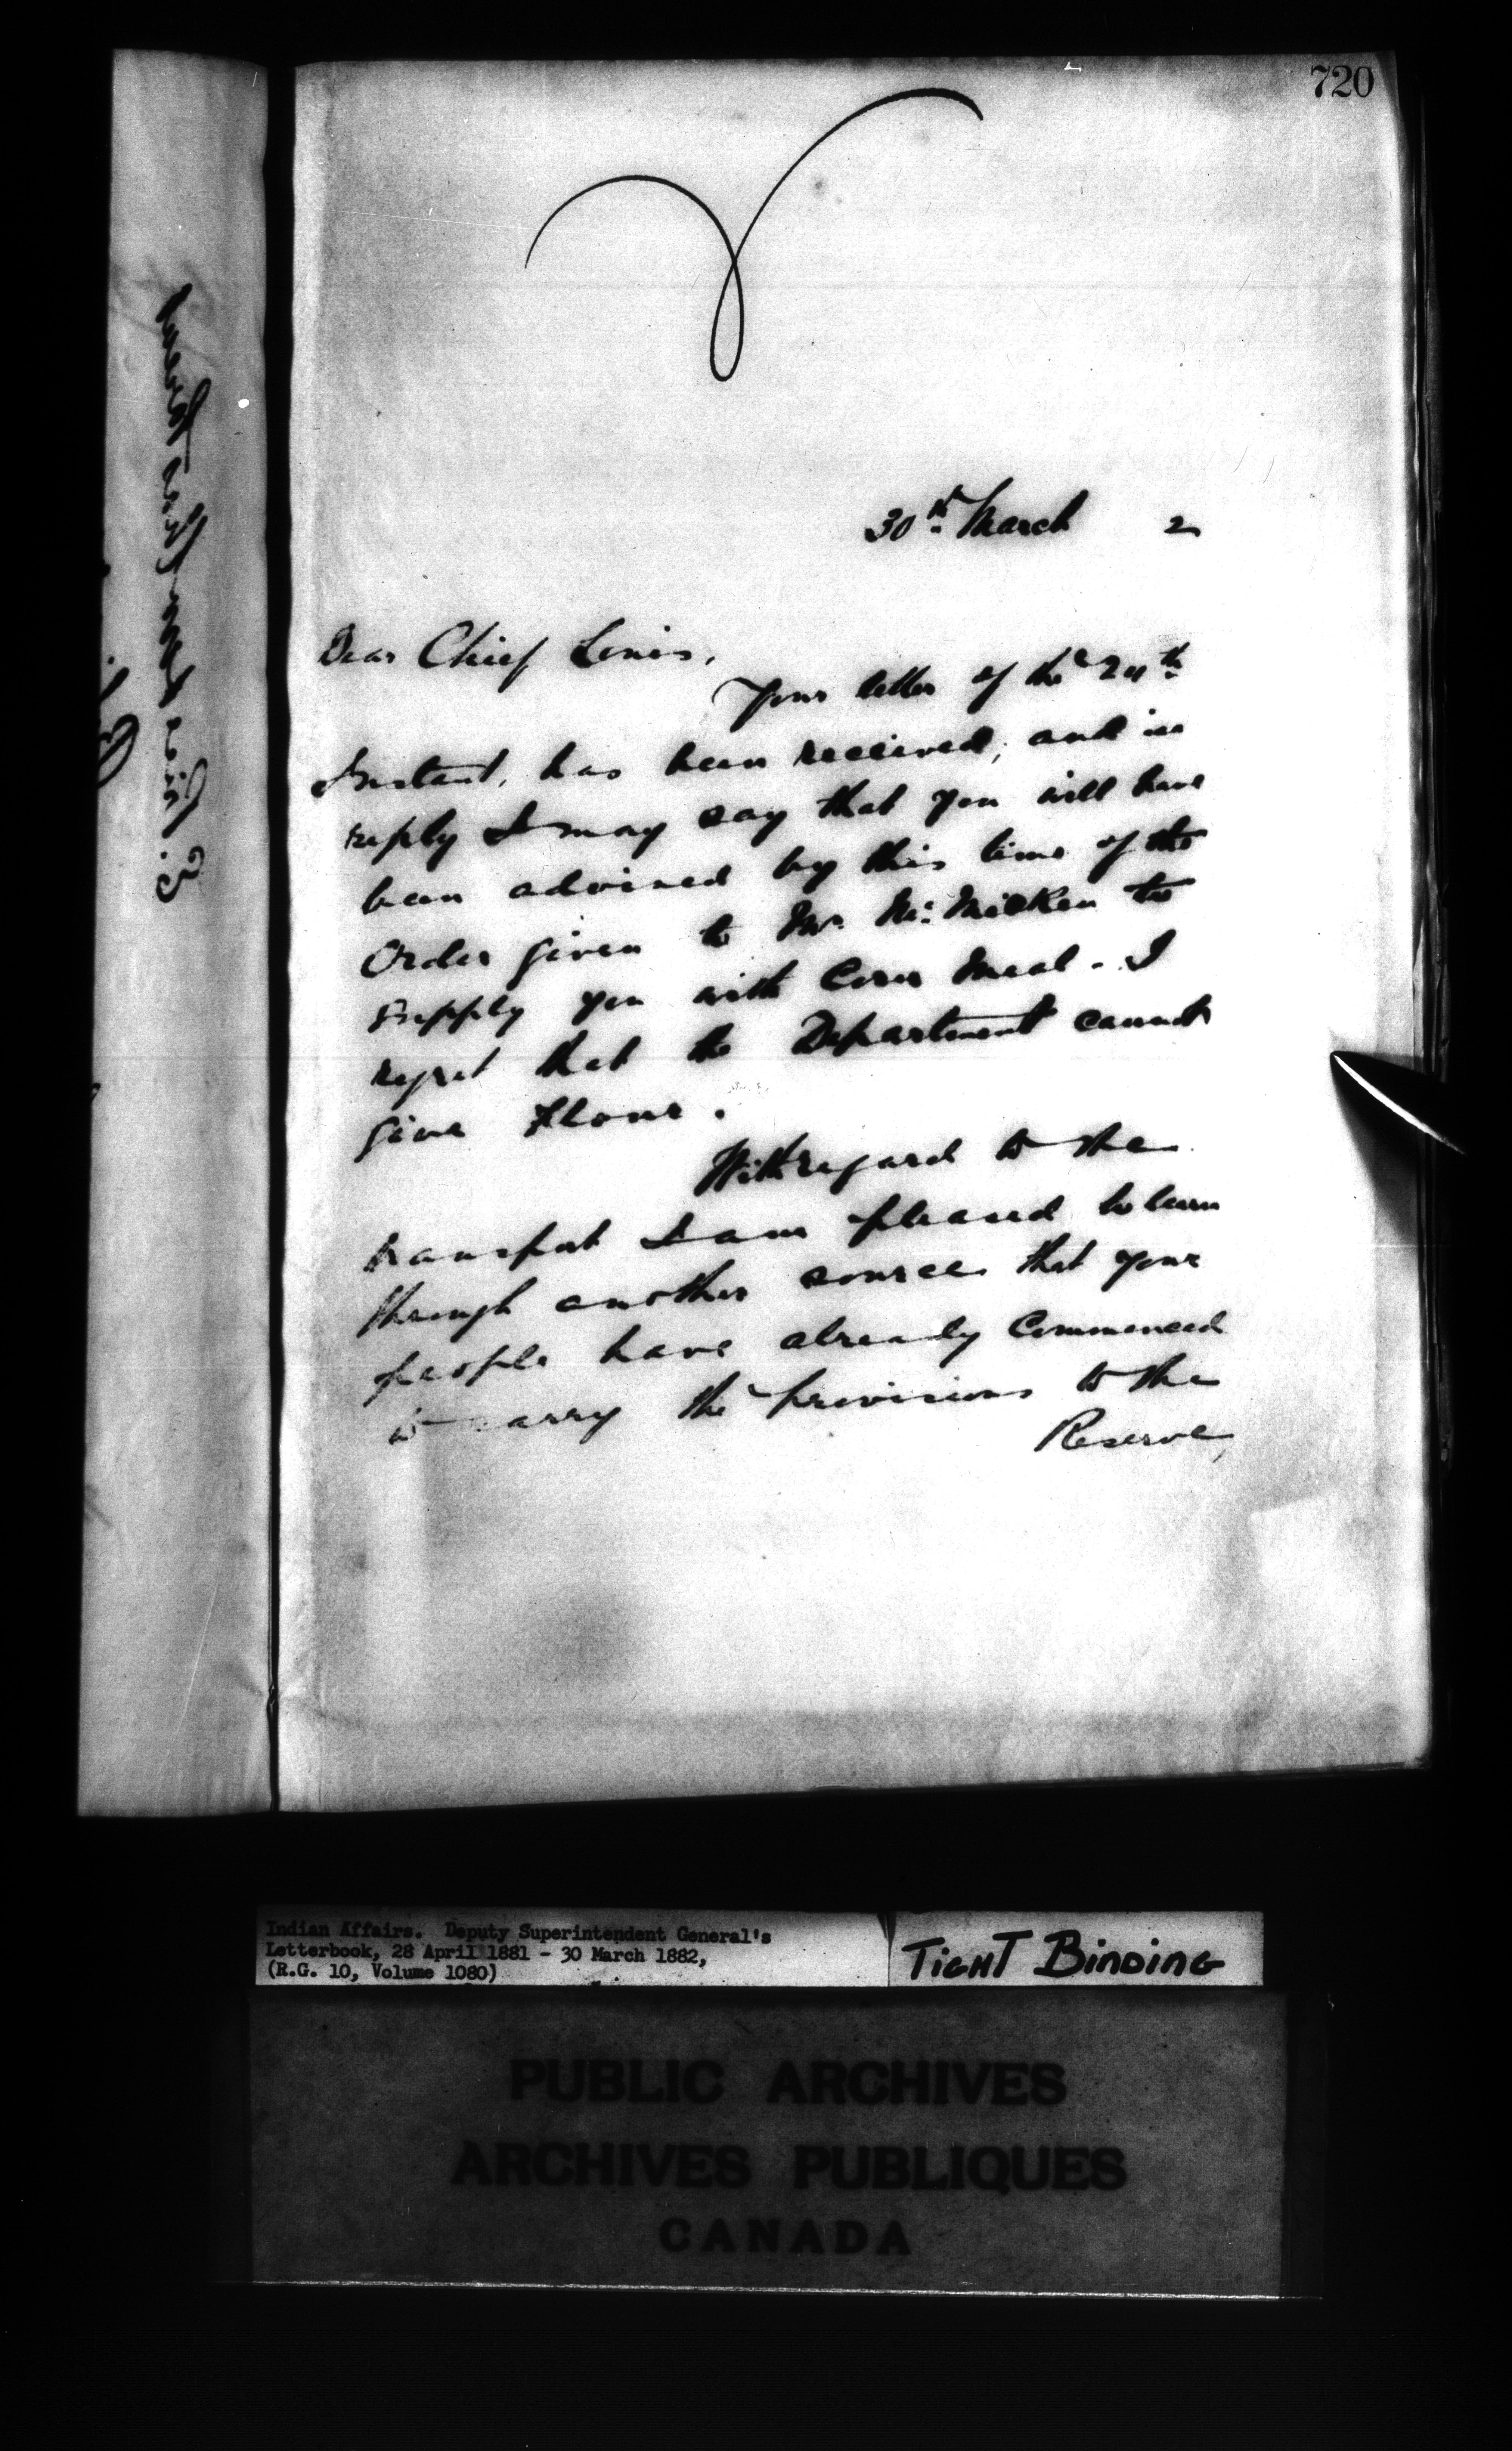 720
30th March 2
Dear Chief Louis,
Your letter of the 24th
Instant, has been received, and in
reply I may say that you will have
been advised by this time of the
Order given to Mr. McMicken to
supply you with Corn Meal. I
regret that the Department cannot
give Flour.
With regard to the
transport I am pleased to learn
through another source that your
people have already Commenced
to carry the provisions to the
Reserve,
Indian Affairs. Deputy Superintendent General's
Letterbook, 28 April 1881 - 30 March 1882,
(R.G. 10, Volume 1080)
TIGHT BINDING
PUBLIC ARCHIVES
ARCHIVES PUBLIQUES
CANADA